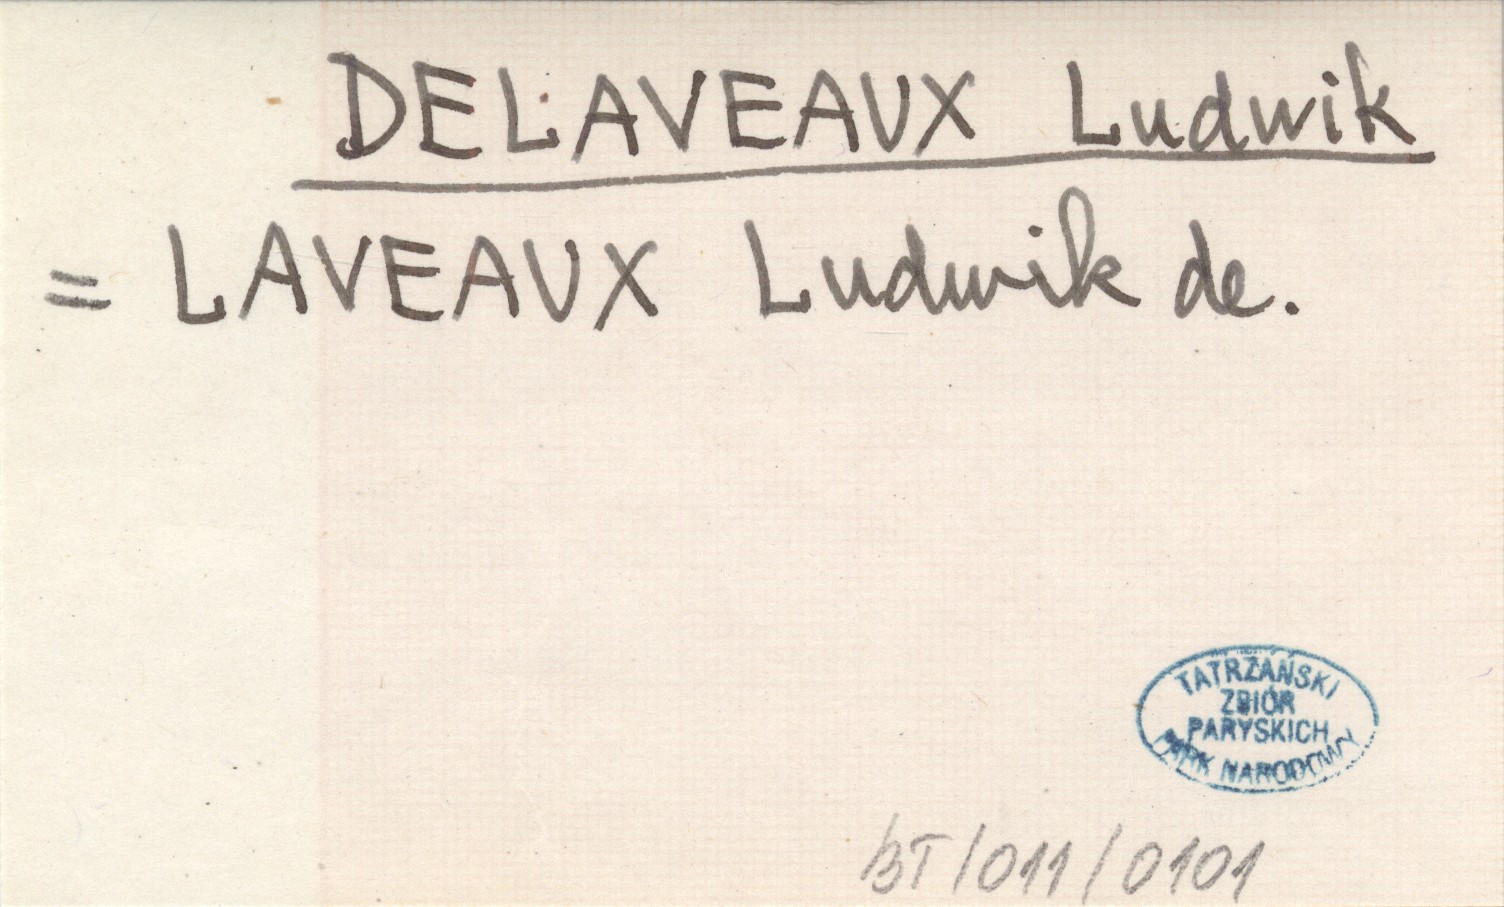 DELAVEAUX Ludwik
= LAVEAUX Ludwik de.
TATRZAŃSKI
ZBIÓR
PARYSKICH
PARK NARODOWY
BT/011/0101